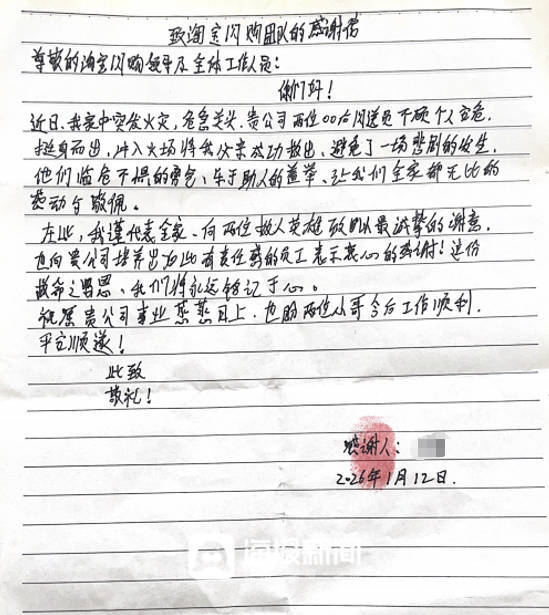 致淘宝闪购团队的感谢信
尊敬的淘宝闪购领导及全体工作人员:
你们好!
近日、我家中突发火灾,危急关头、贵公司两位00后闪送员不顾个人安危,
挺身而出,冲入火场将我父亲成功救出、避免了一场悲剧的发生.
他们临危不惧的勇气、乐于助人的善举、让我们全家都无比的
感动与敬佩。
在此,我谨代表全家、向两位救人英雄致以最诚挚的谢意.
也向贵公司培养出如此有责任感的员工表示衷心的感谢!这份
救命之恩、我们将永远铭记于心。
祝愿贵公司事业蒸蒸日上、也盼两位小哥今后工作顺利.
平安顺遂!
此致
敬礼!
感谢人:
2026年1月12日.
海报新闻